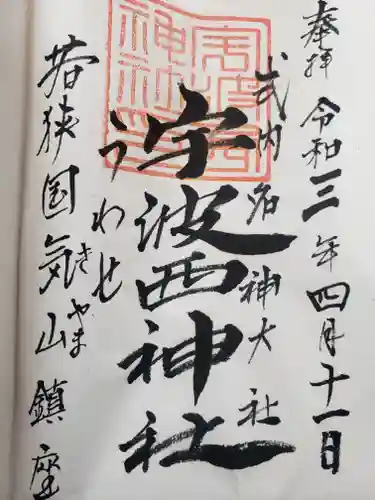 奉拝 令和三年四月十一日
式内名神大社
宇波西神社
うわせ
若狭国気山鎮座
きやま
宇波西神社印